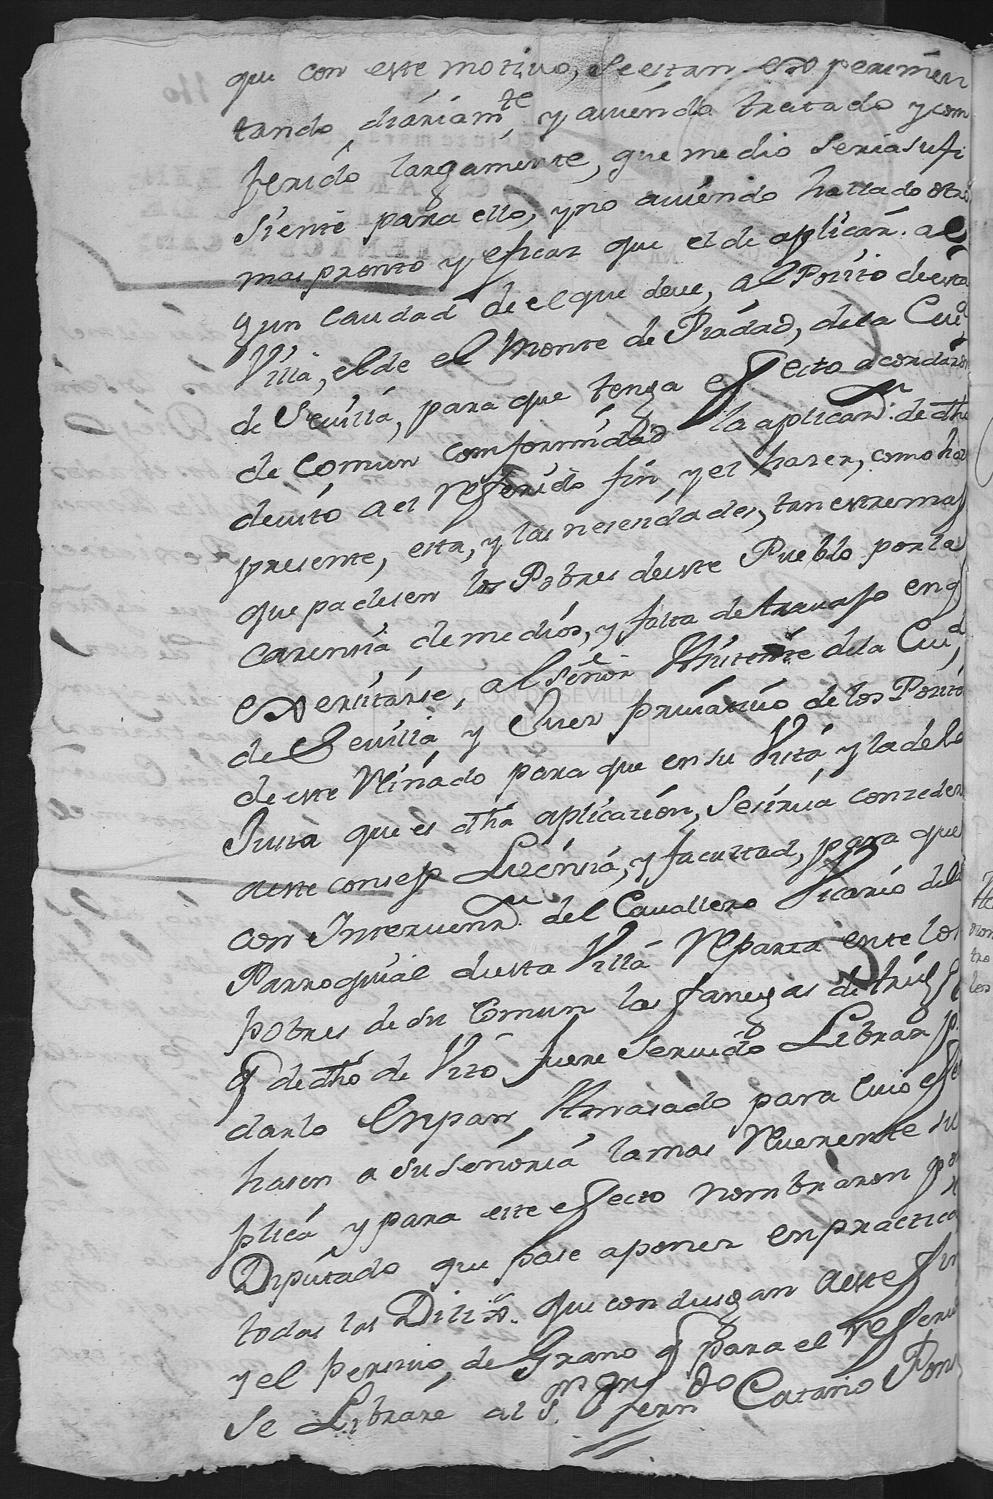 que con este motivo, se estan experimen
tando, diáriam.te y aviéndo tratado y com
ferido largamente, que medio seria sufi
siente para ello, y no aviéndo hallado otro
mas pronto y eficaz que el de aplicár. al
gun caudad de el que deve, al Pocito de esta
Villa, el de el Monte de Piádad, de la Ciu.d
de Sevilla, para que tenga efecto acordaron
de Comun comformidád la aplicaz.n de dho
devito a el referido fin y el hazer, como haze
presente, esta, y las nesesidades, tan extremas
que padesen los Pobres de este Pueblo por la
Carensia de medios, y falta de travajo en q
exersitarse, al señor Asistente de la Ciu.d
de Sevilla y Juez privativo de los Pocitos
de este Reinado para que en su Vista y la de lo
Justa que es dha aplicacion, se sirva conzeder
a este consejo Lizénsia, y facultad, para que
con Intervenz.n del Cavallero Vicario de la
Parroquial de esta Villa Reparta entre los
pobres de su Comun las fanegas de trigo
q de dho devito fuere servido Librar p.a
darlo en pan Amasado para cuio efecto
hasen a su señoria la mas Reverente su
plica y para este efecto nombraron p.r
Diputado que pase a poner en practica
todas las Dilix.s que condusgan a este fin
y el persivo de Grano q para el referido
se Librare al s.r Dn Fern.do Cataño Ponce